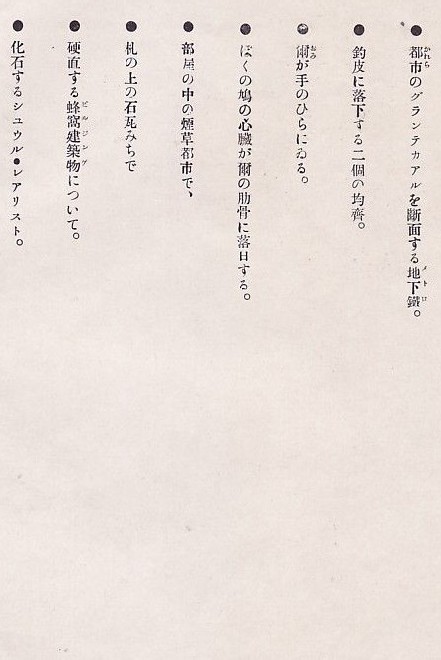 ●都市のグランテカアルを斷面する地下鐵。
かれら
メトロ
●釣皮に落下する二個の均齊。
●爾が手のひらにゐる。
おみ
●ぼくの鳩の心臟が爾の肋骨に落日する。
●部屋の中の煙草都市で、
●札の上の石瓦みちで
●硬直する蜂窩建築物について。
ビルジング
●化石するシユウル●レアリスト。